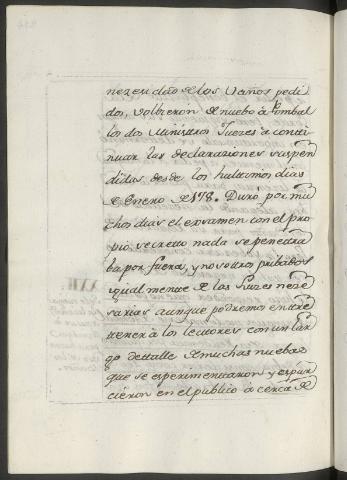 nezesidad de los vaños pedi
dos, volbieron de nuebo à Pombal
los dos Ministros Juezes a conti
nuar las declaraziones suspen
didas desde los hultimos dias
de Enero de 178. Duró por mu
chos dias el exsamen con el pro
pio secretto nada se penettra
ba por fuera, y nosottros pribados
igualmente de las luzes neze
sarias aunque podremos entre
ttener à los lectores con un lar
go dettalle de muchas nuebas
que se esperimenttaron y espar
cieron en el publico à cerca de